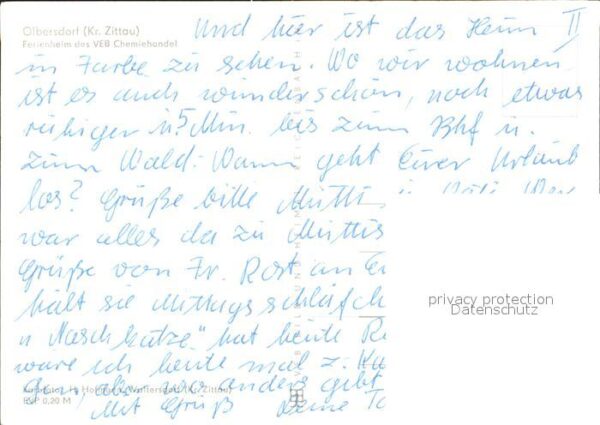 Olbersdorf (Kr. Zittau)
Ferienheim des VEB Chemiehandel
Und hier ist das Heim II
in Farbe zu sehen. Wo wir wohnen
ist es auch wunderschön, noch etwas
ruhiger u. 5 Min. bis zum Bhf u.
zum Wald. Wann geht Euer Urlaub
los? Grüße bitte Mutti
war alles da zu Muttis
Grüße von Fr. Rost an
hält sie Mittagsschläfch
u Naschkatze" hat heute
wäre ich heute mal z.
woanders gibt
Mit Gruß Deine
(Kr. Zittau)
EVP 0,20 M
privacy protection
Datenschutz